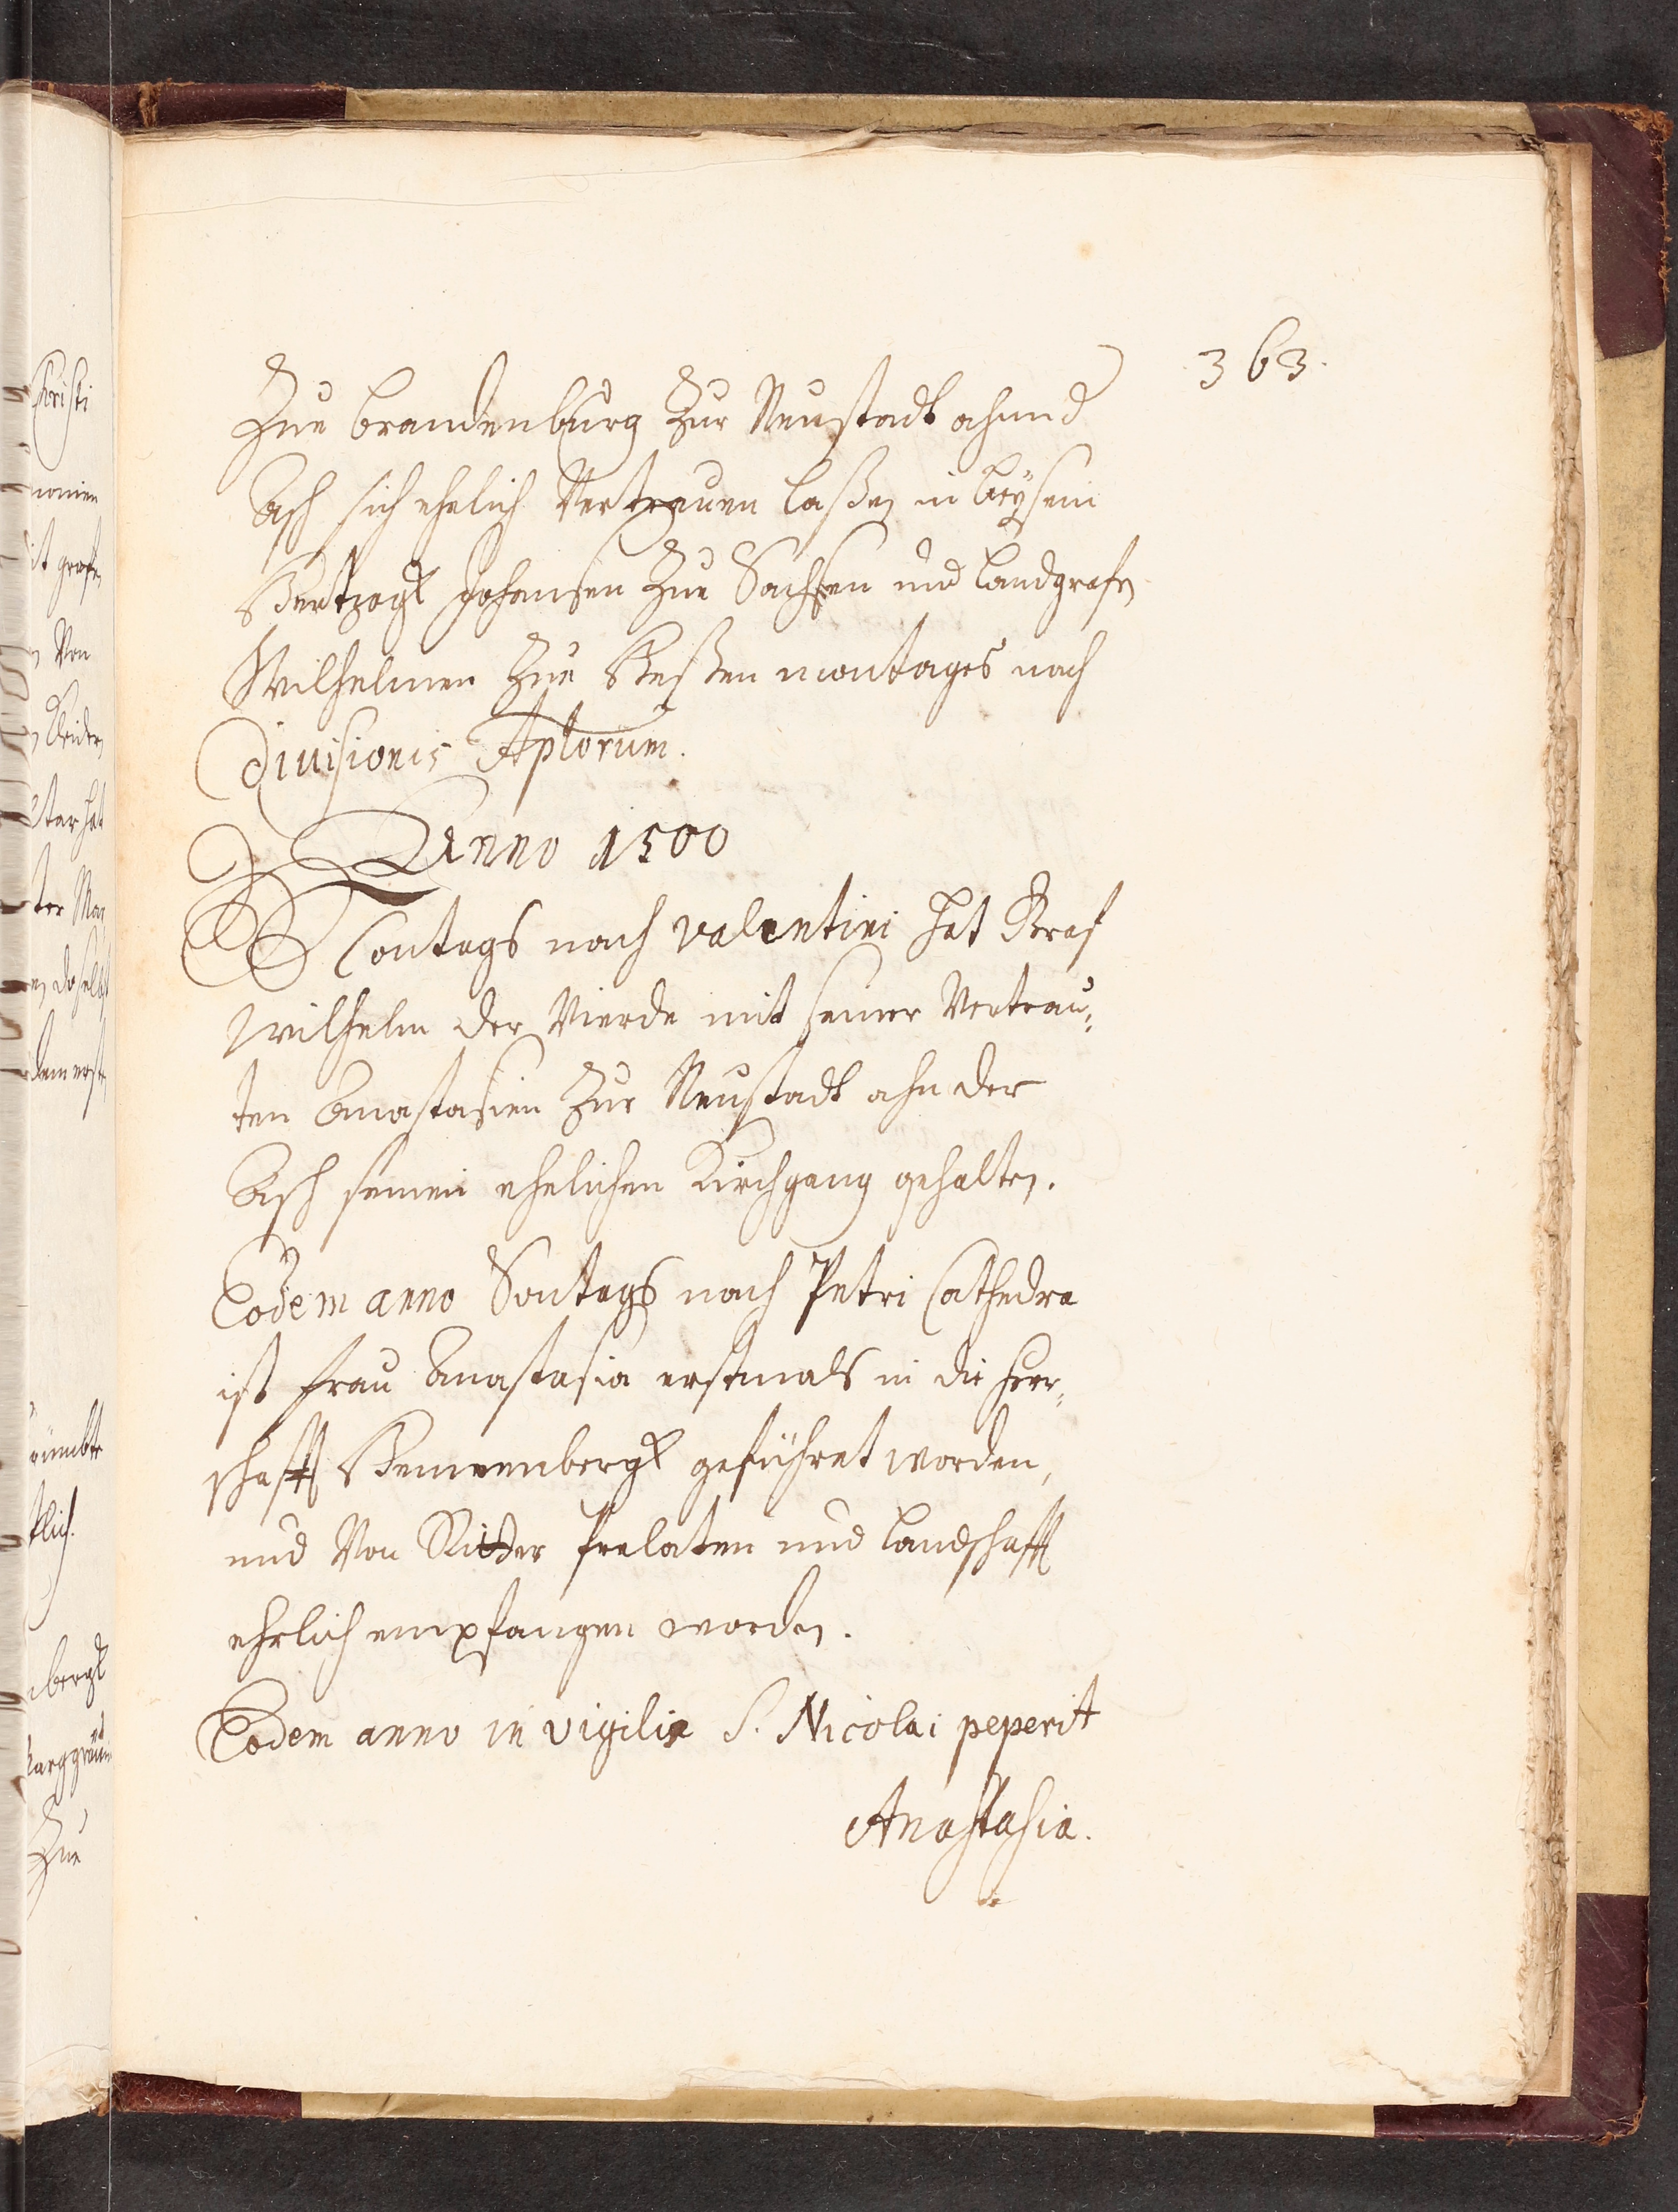 363.
Zue Brandenburg Zur Neustadt ahnnd
Asch sich ehelich Vertrauen laßen in beÿsein
Hertzogk Johansen Zue Sachsen und Landgrafen
Wilhelmen Zue Heßen montages nach
Diuisionis Aplorum.
Anno 1500
Sontags nach Valentini hat Graf
Wilhelm der Vierde mit seiner Vertrau,,
ten Anastasien Zur Neustadt ahn der
Asch seinen ehelichen Kirchgang gehalten.
Eodem anno Sontags nach Petri Cathedra
ist Frau Anastasia erstmals in die Herr,,
schafft Hennenbergk geführet worden,
und Von Ritter Prelaten und Landschafft
ehrlich empfangen worden.
Eodem anno in vigilia S. Nicolai peperit
Anastasia.